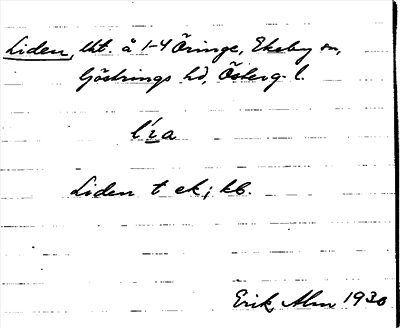 Liden, lht. å 1-4 Öringe, Ekeby sn,
Göstrings hd, Österg. l.
Liden t ek; kb.
Erik Alm 1930